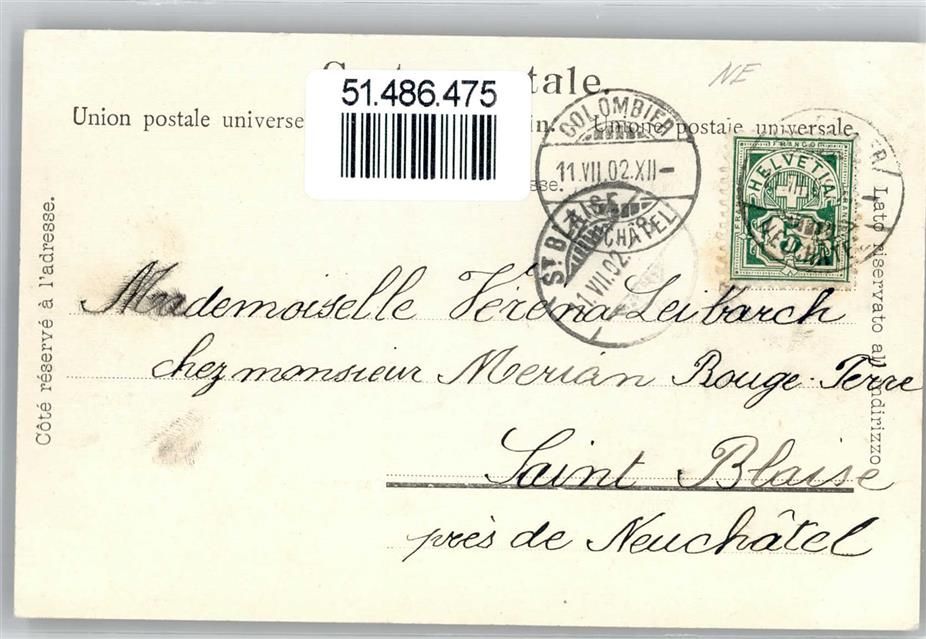 NE
51.486.475
Union postale universe
tale.
in. Unione postale universale
sse.
COLOMBIER
11.VII.02.XII-
(NEUCHÂTEL)
ST BLAISE
11.VII.02.
FRANCO
HELVETIA
5
Côté réservé à l'adresse.
Lato riservato all'indirizzo
Mademoiselle Vérèna Leibarch
chez monsieur Merian Rouge-Terre
Saint Blaise
près de Neuchâtel